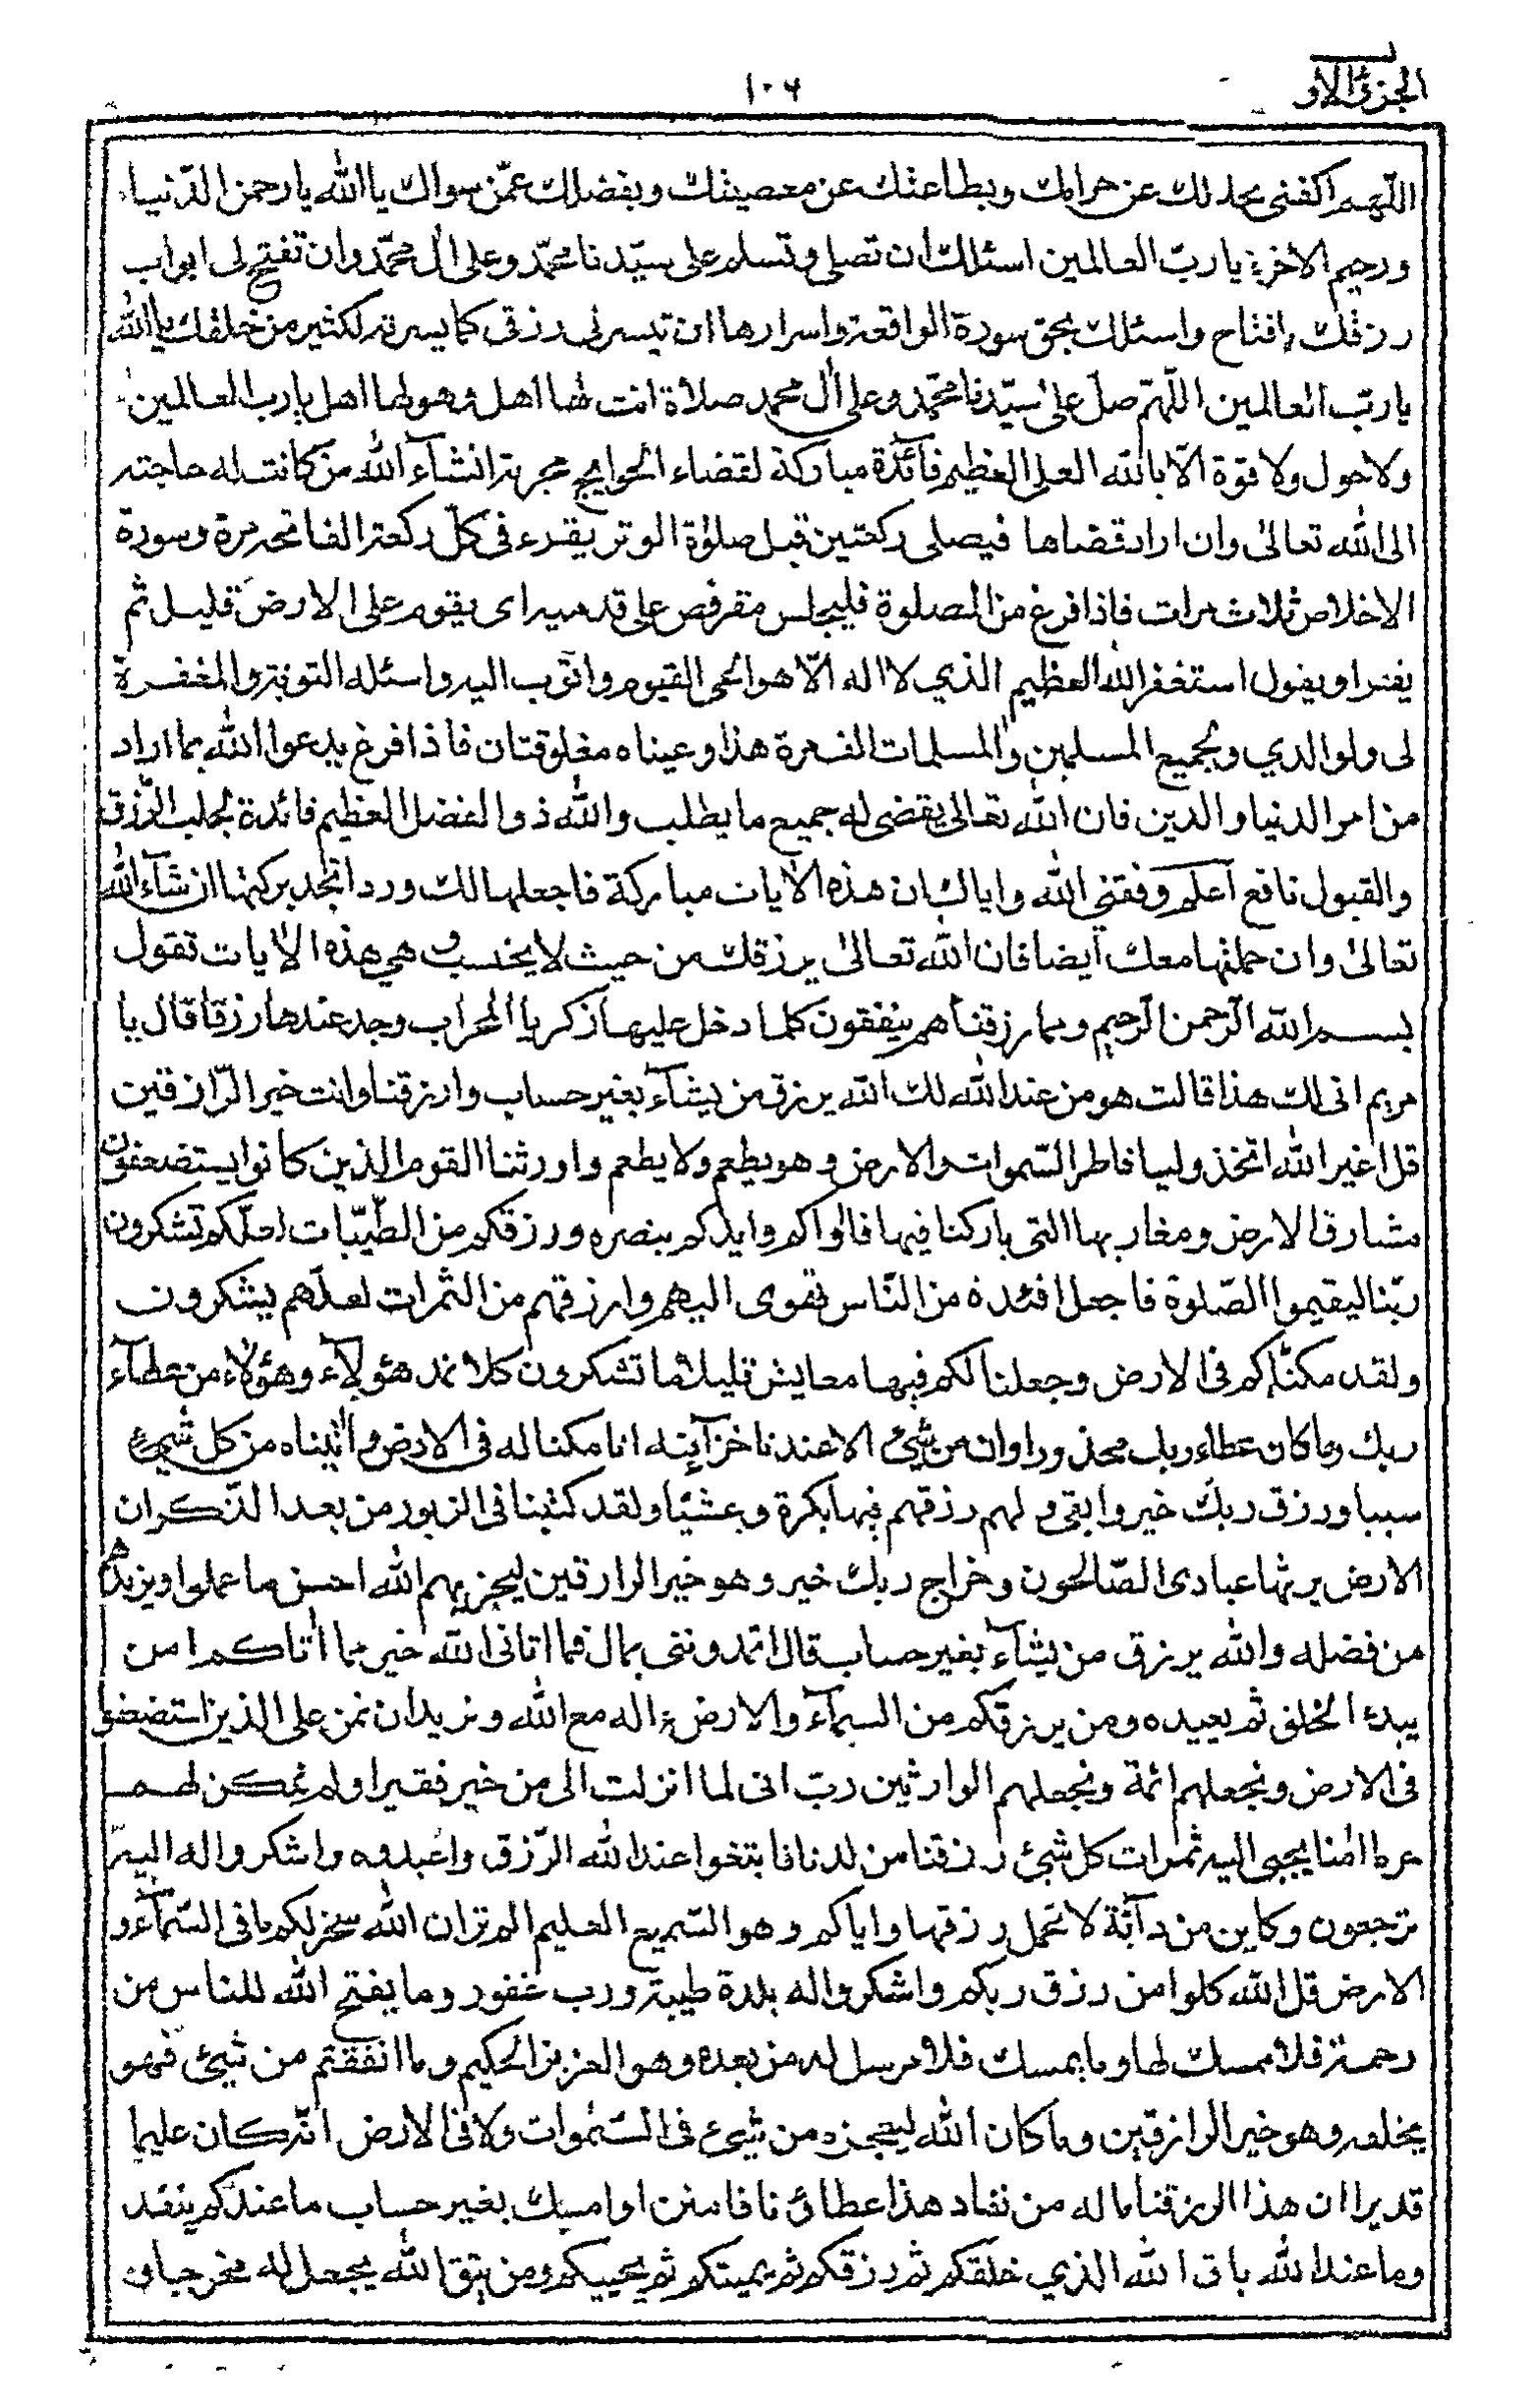 الجزئ الاول
١٠٦
اللهم اكفنى بحلالك عن حرامك وبطاعتك عن معصيتك وبفضلك عمّن سواك يا الله يا رحمن الدّنيا
ورحيم الاخرة يا ربّ العالمين اسئلك ان تصلى وتسلم على سيّدنا محمّد وعلى اٰل محمّد وان تفتح لى ابواب
رزقك يافتاح واسئلك بحق سورة الواقعة واسرارها ان تيسر لى رزقى كما يسرته لكثير من خلقك يا الله
يا ربّ العالمين اللّهمّ صل على سيّدنا محمّد وعلى اٰل محمد صلاة انت لها اهل وهو لها اهل يا رب العالمين
ولا حول ولا قوّة الّا بالله العلى العظيم فآئدة مباركة لقضاء الحوايج مجربة انشآء الله من كانت له حاجته
الى الله تعالىٰ وان اراد قضاها فيصلى ركعتين قبل صلوٰة الوتر يقرء فى كلّ ركعة الفاتحه مرة وسورة
الاخلاص ثلاث مرات فاذا فرغ من الصلوة فليجلس مقرفص على قدميه اى يقوم على الارض قليل ثم
يقرا ويقول استغفر الله العظيم الذي لا اله الّا هو الحى القيوم واتوب اليه واسئله التوبة والمغفرة
لى ولوالدي ولجميع المسلمين والمسلمات الف مرة هذا وعيناه مغلوقتان فاذا فرغ يدعوا الله بما اراد
من امر الدنيا والدين فان الله تعالى يقضى له جميع ما يطلب والله ذو الفضل العظيم فائدة لجلب الرّزق
والقبول نافع اعلم وفقني الله واياك ان هذه الاٰيات مباركة فاجعلها لك وردا تجد بركتها ان شآء الله
تعالىٰ وان حملتها معك ايضا فان الله تعالىٰ يرزقك من حيث لا يحتسب وهي هذه الاٰيات تقول
بسم الله الرّحمن الرّحيم ومما رزقناهم ينفقون كلما دخل عليها زكريا المحراب وجد عندها رزقا قال يا
مريم انى لك هذا قالت هو من عند الله لك الله يرزق من يشآء بغير حساب وارزقنا وانت خير الرّازقين
قل اغير الله اتخذ وليا فاطر السّموات والارض وهو يطعم ولا يطعم واورثنا القوم الذين كانوا يستضعفون
مشارق الارض ومغاربها التى باركنا فيها فاٰواكم وايدكم بنصره ورزقكم من الطّيّبات لعلّكم تشكرون
ربّنا ليقيموا الصّلوة فاجعل افئدة من النّاس تهوى اليهم وارزقهم من الثمرات لعلّهم يشكرون
ولقد مكنّاكم فى الارض وجعلنا لكم فيها معايش قليلا ما تشكرون كلا نمد هٰؤلآء وهٰؤلاء من عطآء
ربك وما كان عطاء ربك محذورا وان من شئ الا عندنا خزآئنه انا مكنا له فى الارض واٰتيناه من كل شئ
سببا ورزق ربك خير وابقى ولهم رزقهم فيها بكرة وعشيّا ولقد كتبنا فى الزبور من بعد الذكر ان
الارض يرثها عبادى الصّالحون وخراج ربك خير وهو خير الرازقين ليجزيهم الله احسن ما عملوا ويزيدهم
من فضله والله يرزق من يشآء بغير حساب قال اتمدوننى بمال فما اتانى الله خير مما اٰتاكم امن
يبدء الخلق ثم يعيده ومن يرزقكم من السمآء والارض ءاله مع الله ونريد ان نمن على الذين استضعفوا
فى الارض ونجعلهم ائمة ونجعلهم الوارثين ربّ انى لما انزلت الى من خير فقير اولم نمكن لهم
حرما اٰمنا يجبى اليه ثمرات كل شئ رزقنا من لدنا فابتغوا عند الله الرّزق واعبدوه واشكروا له اليه
ترجعون وكاين من دآبّة لا تحمل رزقها واياكم وهو السّميع العليم الم تر ان الله سخر لكم ما فى السّمآء و
الارض قل الله كلوا من رزق ربكم واشكروا له بلدة طيبة ورب غفور وما يفتح الله للناس من
رحمة فلا ممسك لها وما يمسك فلا مرسل له من بعده وهو العزيز الحكيم وما انفقتم من شئ فهو
يخلفه وهو خير الرازقين وما كان الله ليعجزه من شئ فى السّمٰوات ولا فى الارض انّه كان عليما
قديرا ان هذا الرزقنا ماله من نفاد هذا عطائ نا فامنن او امسك بغير حساب ما عندكم ينفد
وما عند الله باق الله الذي خلقكم ثم رزقكم ثم يميتكم ثم يحييكم ومن يتق الله يجعل له مخرجا